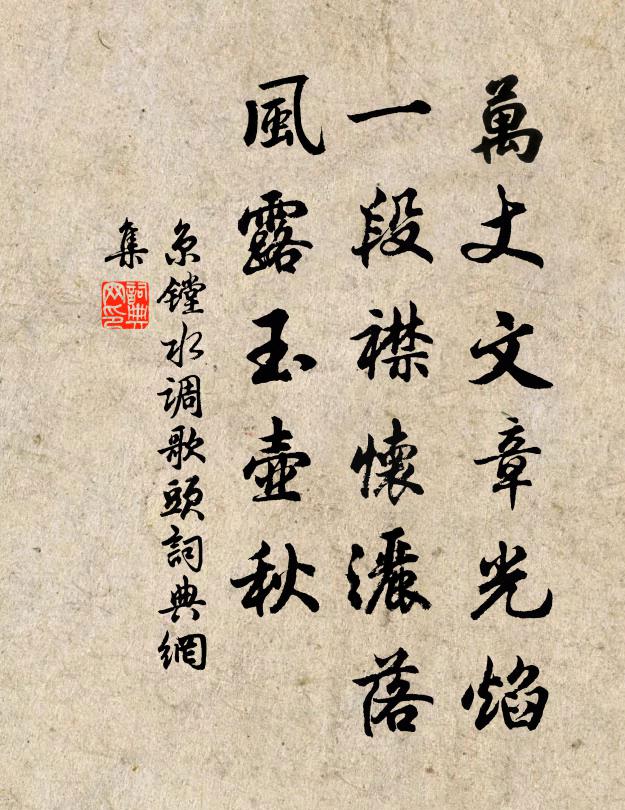 萬丈文章光焰
一段襟懷灑落
風露玉壺秋
京鏜水调歌頭詞典網
集
詞典
网印